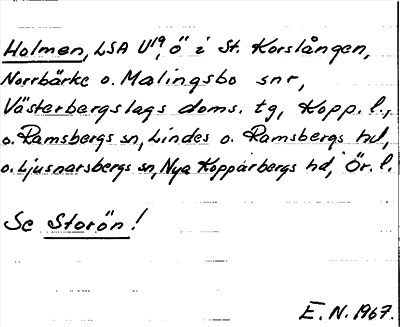 Holmen, LSA U19, ö i St. Korslången,
Norrbärke o. Malingsbo snr,
Västerbergslags doms. tg, Kopp. l.,
o. Ramsbergs sn, Lindes o. Ramsbergs hd,
o. Ljusnarsbergs sn, Nya Kopparbergs hd, Ör. l.
Se Storön!
E. N. 1967.